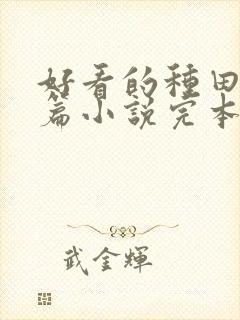 好看的種田
篇小說完本
武金輝